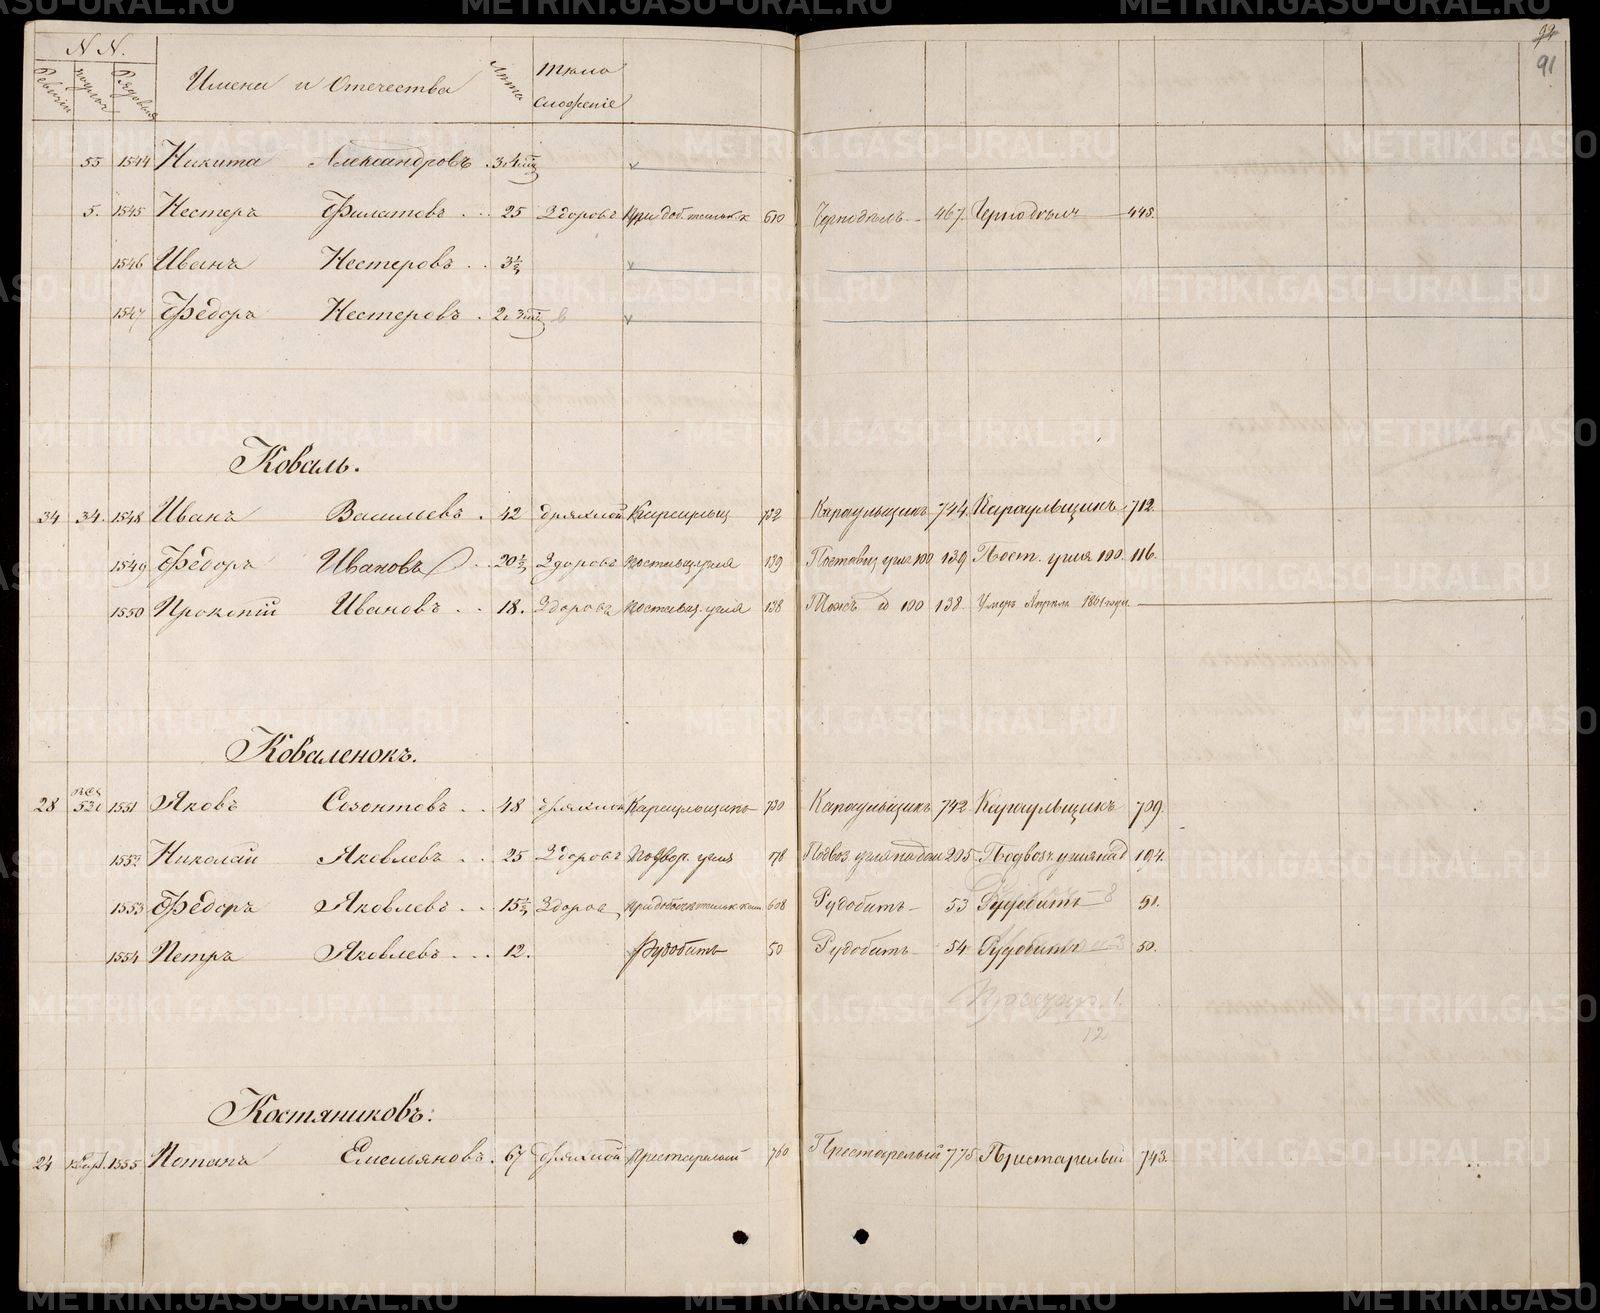 METRIKI.GASO-URAL.RU
N N.
Имена и Отечества
Лѣта
Тѣло
сложеніе
91
55 1544 Никита Александровъ 3.4
5. 1545 Нестеръ Филатовъ 25 Здоровъ 610 467. 445.
1546 Иванъ Нестеровъ 3½
1547 Ѳедоръ Нестеровъ 2.3
Коваль.
34 34. 1548 Иванъ Васильевъ 42 дряхлой 732 Караульщикъ 744. Караульщикъ 712.
1549 Ѳедоръ Ивановъ 20½ Здоровъ угля 139 угля 100 139 Пост. угля 100. 116.
1550 Прокопій Ивановъ 18. Здоровъ угля 138 Тожъ 100 138. Умеръ Апрѣля 1861 года
Коваленокъ.
28 520 1551 Яковъ Созонтовъ 48 дряхлой Караульщикъ 730 Караульщикъ 742 Караульщикъ 709.
1552 Николай Яковлевъ 25 Здоровъ угля 178 205 194.
1553 Ѳедоръ Яковлевъ 15½ Здоровъ 608 Рудобитъ 53 Рудобитъ 51.
1554 Петръ Яковлевъ 12. Рудобитъ 50 Рудобитъ 54 Рудобитъ 50.
12
Костяниковъ:
24 1555 Потапъ Емельяновъ. 67 дряхлой Престарелый 760 Престарелый 775 Престарелый 743.